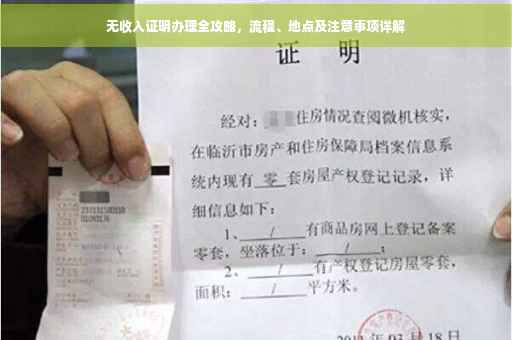 无收入证明办理全攻略，流程、地点及注意事项详解
证 明
经对：住房情况查阅微机核实，
在临沂市房产和住房保障局档案信息系
统内现有 零 套房屋产权登记记录，详
细信息如下：
1、 / 有商品房网上登记备案
零套，坐落位于： / ；
2、 / 有产权登记房屋零套，
面积： / 平方米。
03 月 18 日